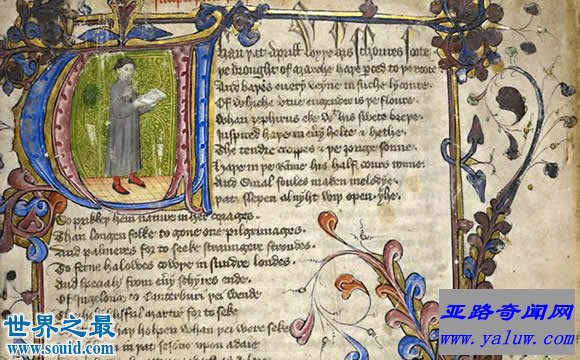 Whan þat Aprill wyþe his schoures sote
þe drouȝt of marche haþe perced to þe roote
And baþed euery veyne in suche licoure
Of whiche vertue engendred is þe floure
Whan zephirus eke wiþ his swete breþe
Inspired haþe in euery holte & heþe
The tendre croppes & þe ȝonge sonne
Haþe in þe Rame his half cours ronne
And smal foules maken melodye
þat slepen al nyht open yhe
So prikkeþ hem nature in her corages
Than longen folke to gone one pilgrimages
And palmeres for to seeke straungere strondes
To ferne halowes cowþe in londes
And specialy from euery schyres ende
Of Ingelond to Canterburi þei wende
blisful martir for to seke
holpen whan þei were seke
in þat sesone upon a daie
世界之最
www.souid.com
亚路奇闻网
www.yaluw.com